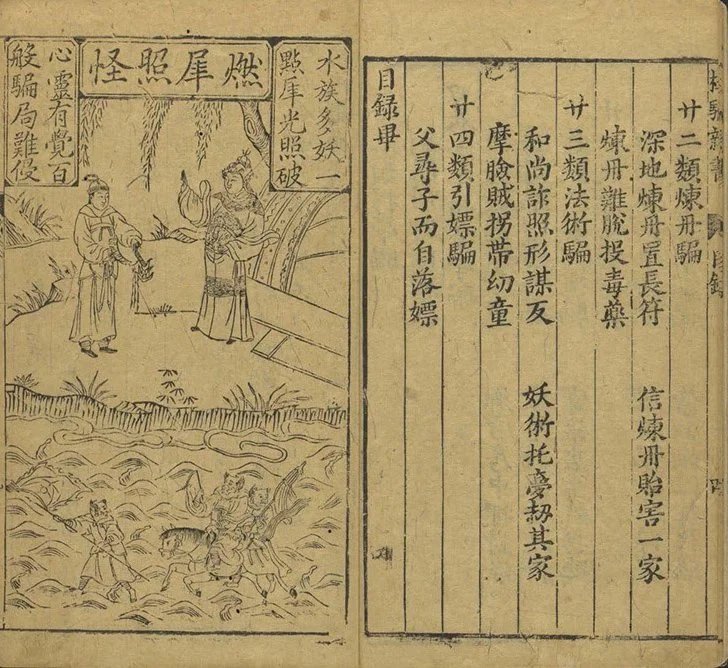 杜騙新書 目錄 四
廿二類煉丹騙
深地煉丹置長符 信煉丹貽害一家
煉丹難脫投毒藥
廿三類法術騙
和尚詐照形謀反 妖術托夢刼其家
摩臉賊拐帶幼童
廿四類引嫖騙
父尋子而自落嫖
目錄畢
燃犀照怪
水族多妖一
點犀光照破
心靈有覺百
般騙局難侵